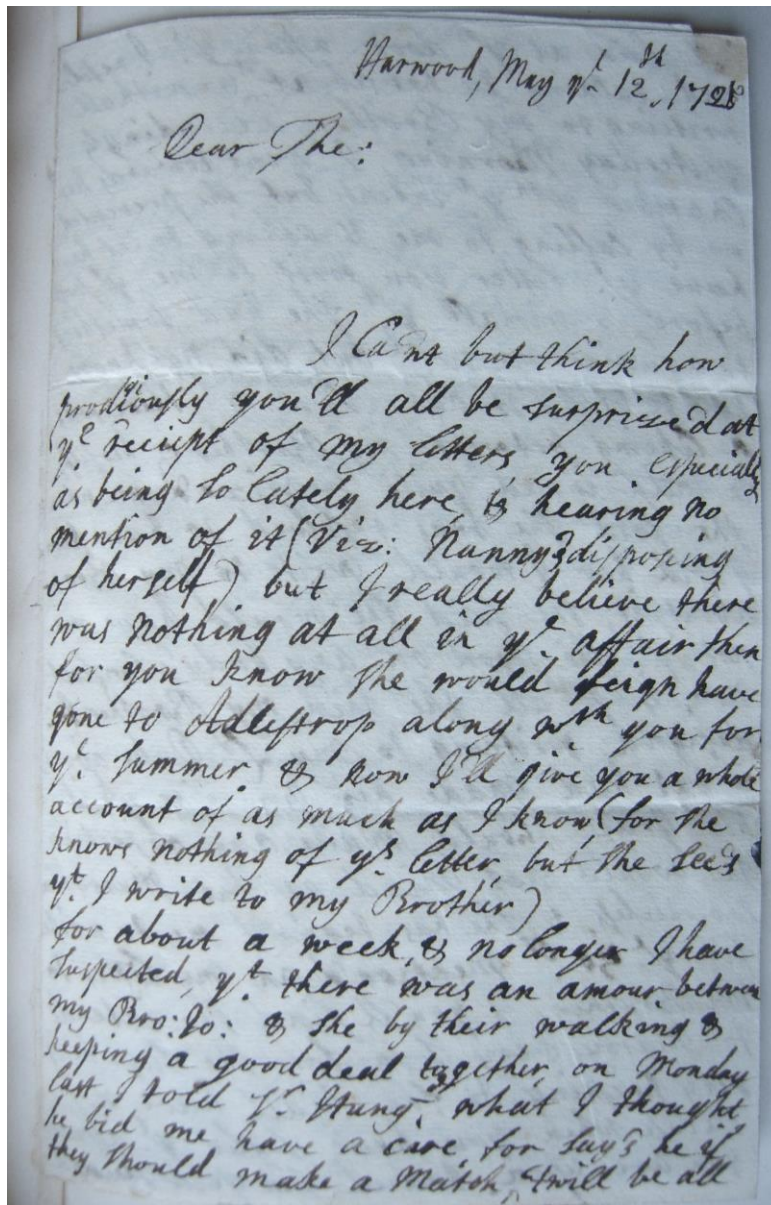 Harwood, May ye. 12th. 172
Dear The:
I Ca'nt but think how
prodigiously you'll all be surprized at
ye reciept of my letters, you especially
as being so lately here, & hearing no
mention of it (Viz: Nanny's disposing
of herself) but I really believe there
was nothing at all in ye. affair then
for you know she would feign have
gone to Adlestrop along wth you for
ye. summer, & now I'll give you a whole
account of as much as I know (for she
knows nothing of ys. letter, but she sees
yt. I write to my Brother)
for about a week, & no longer I have
suspected, yt. there was an amour between
my Bro: Jo: & she by their walking &
keeping a good deal together, on Monday
last I told Sr. Hung what I thought
he bid me have a care, for say's he if
they should make a Match, 'twill be all